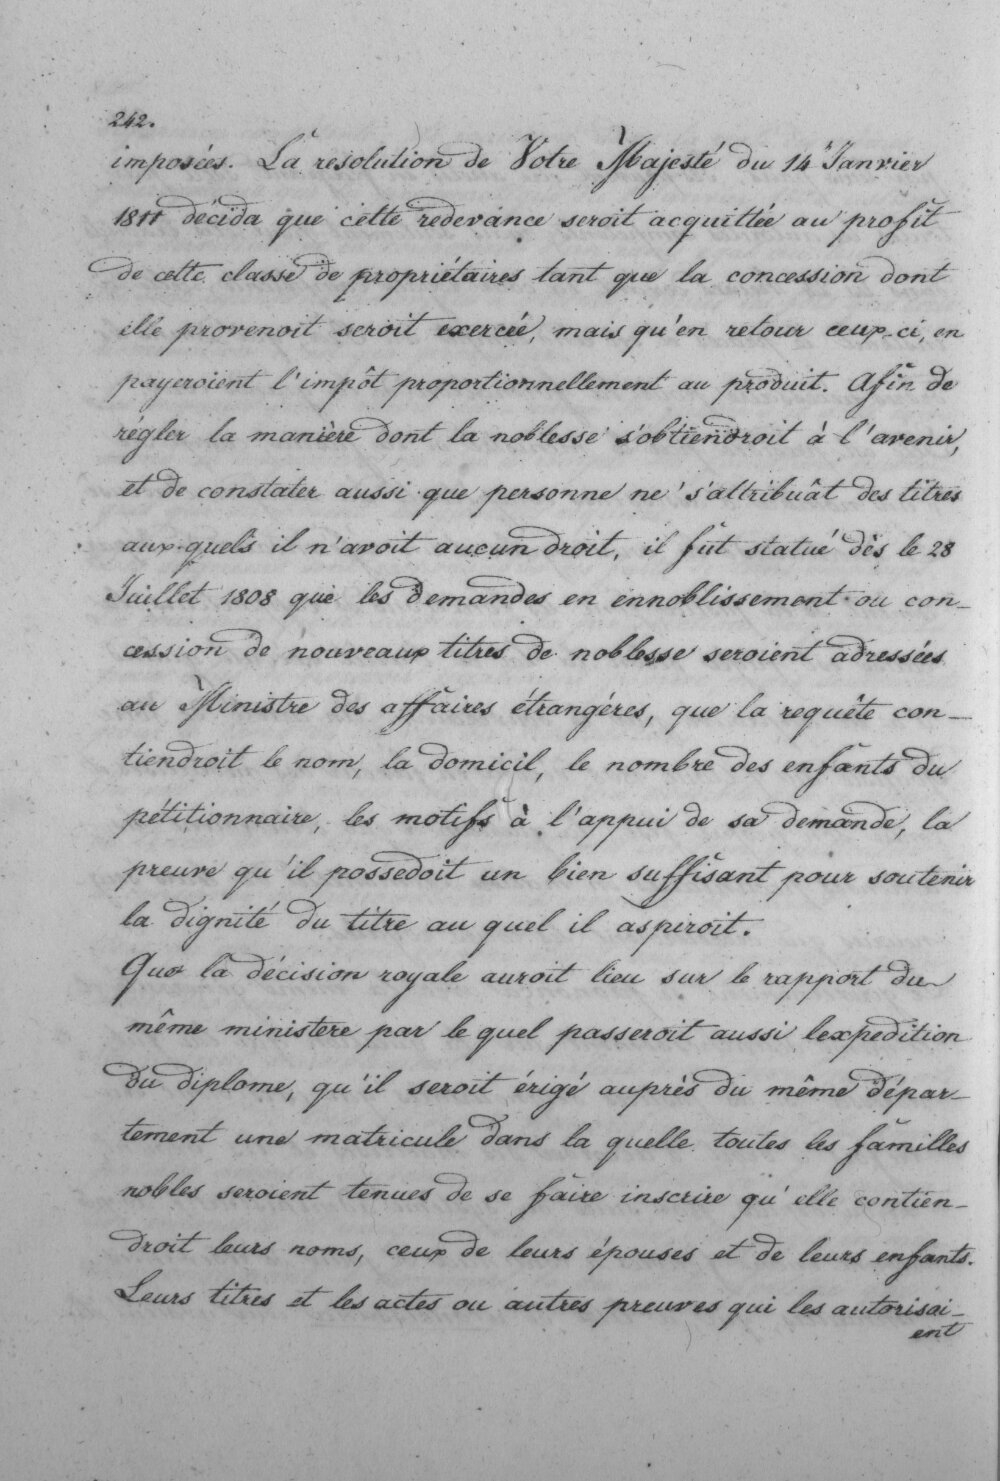 242.
imposées. La resolution de Votre Majesté du 14 Janvier
1811 décida que cette redevance seroit acquittée au profit
de cette classe de propriétaires tant que la concession dont
elle provenoit seroit exercée, mais qu'en retour ceux-ci, en
payeroient l'impôt proportionnellement au produit. Afin de
régler la manière dont la noblesse s'obtiendroit à l'avenir,
et de constater aussi que personne ne s'attribuât des titres
aux quels il n'avoit aucun droit, il fut statué dès le 28
Juillet 1808 que les demandes en ennoblissement ou con-
cession de nouveaux titres de noblesse seroient adressées
au Ministre des affaires étrangéres, que la requête con-
tiendroit le nom, la domicil, le nombre des enfants du
pétitionnaire, les motifs à l'appui de sa demande, la
preuve qu'il possedoit un bien suffisant pour soutenir
la dignité du titre au quel il aspiroit.
Que la décision royale auroit lieu sur le rapport du
même ministere par le quel passeroit aussi lexpedition
du diplome, qu'il seroit érigé auprès du même dépar-
tement une matricule dans la quelle toutes les familles
nobles seroient tenues de se faire inscrire qu'elle contien-
droit leurs noms, ceux de leurs épouses et de leurs enfants.
Leurs titres et les actes ou autres preuves qui les autorisai-
ent